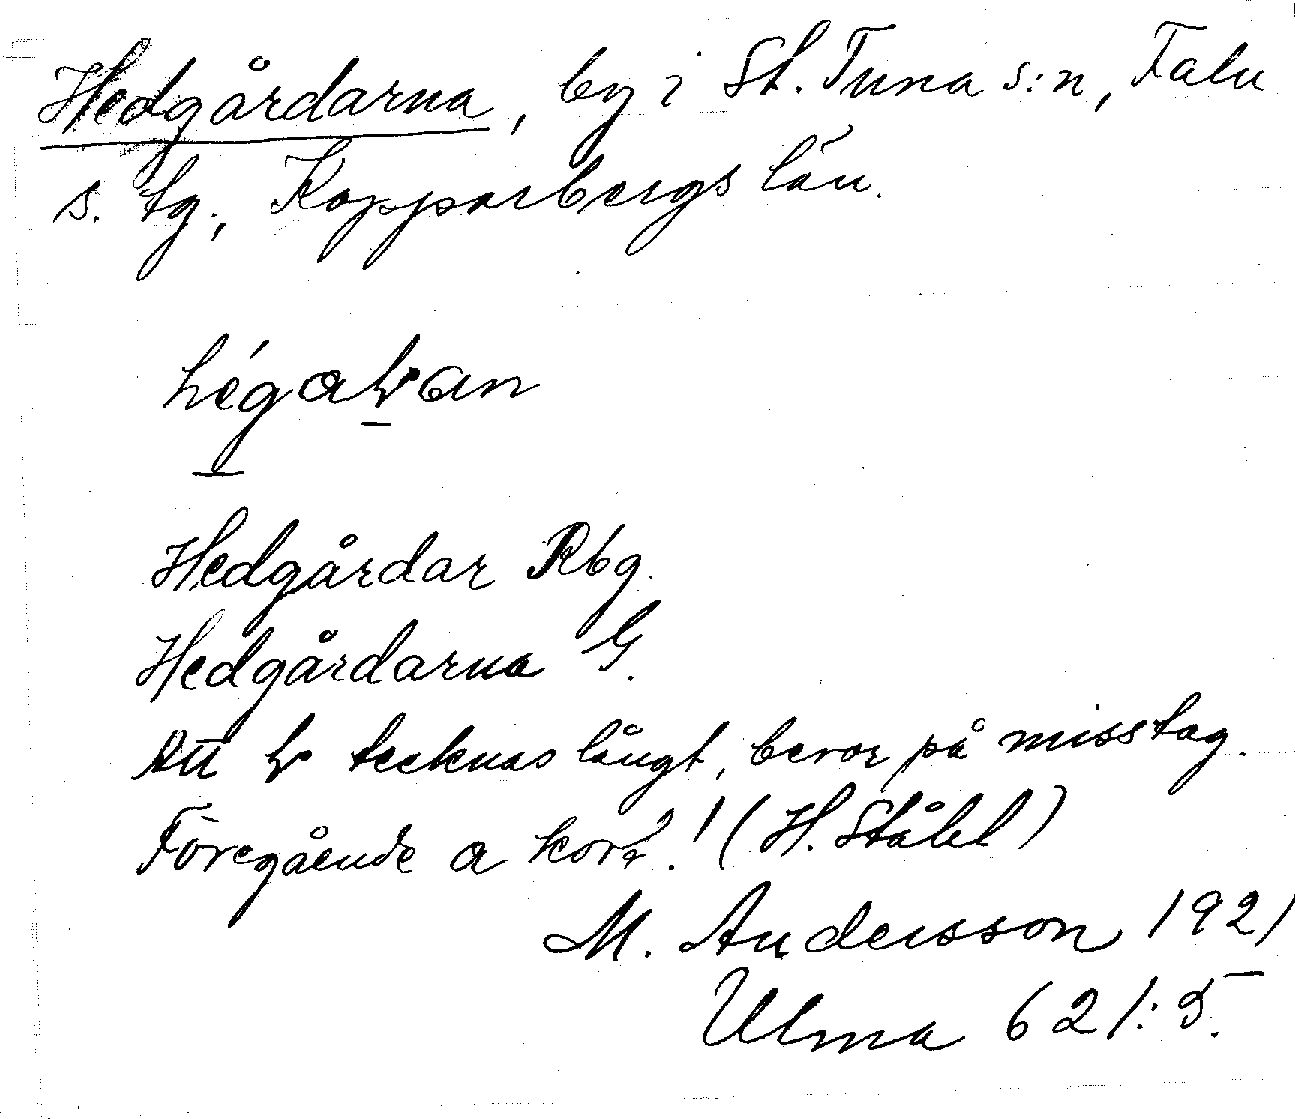 Hedgårdarna, by i St. Tuna s:n, Falu
s. tg., Kopparbergs län.
Hedgårdar Rbg.
Hedgårdarna G.
Att tecknas långt, beror på misstag.
Föregående a kort! (H. Ståhl)
M. Andersson 1921
Ulma 621:5.